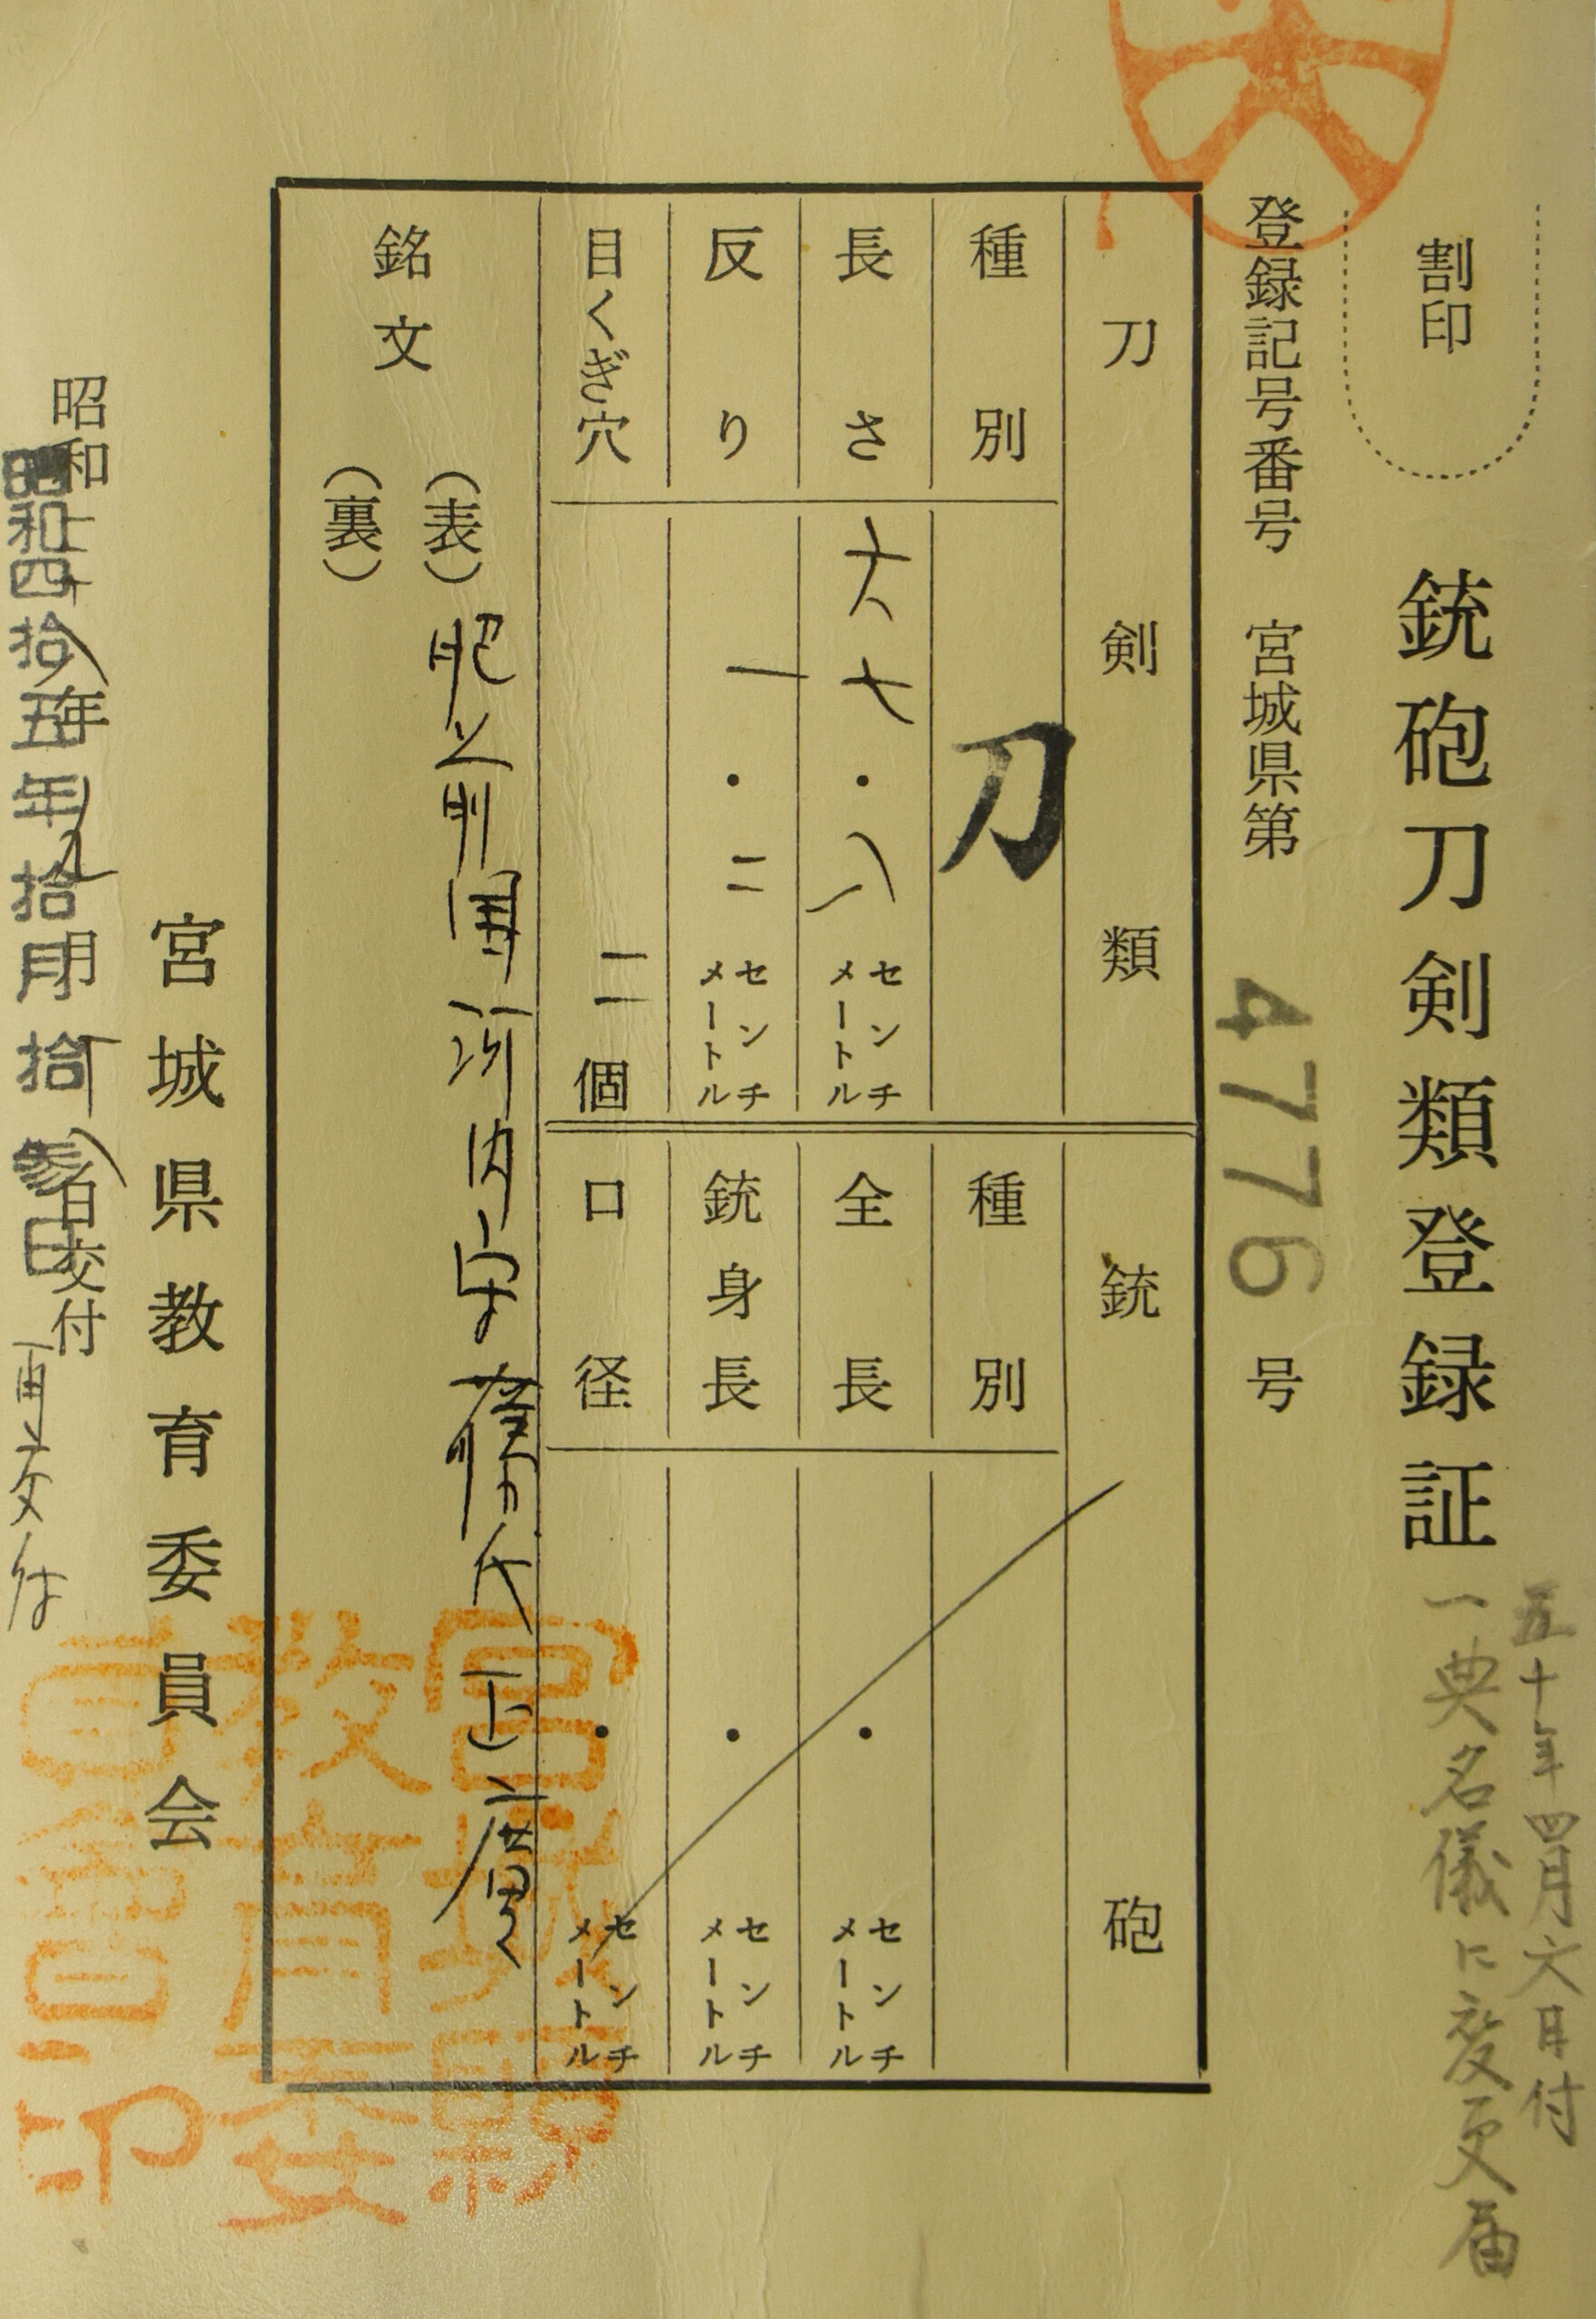 五十年四月六日付
一典名儀に変更届
割印
銃砲刀剣類登録証
登録記号番号 宮城県第 4776 号
刀剣類
銃砲
種別 刀
長さ 六七・八 センチメートル
反り 一・二 センチメートル
目くぎ穴 二個
種別
全長 ・ センチメートル
銃身長 ・ センチメートル
口径 ・ センチメートル
銘文
(表) 肥之前国河内守藤原正広
(裏)
宮城県教育委員会
昭和 年 月 日交付
昭和四拾五年拾月拾参日 再交付
宮城県
教育委
員会印